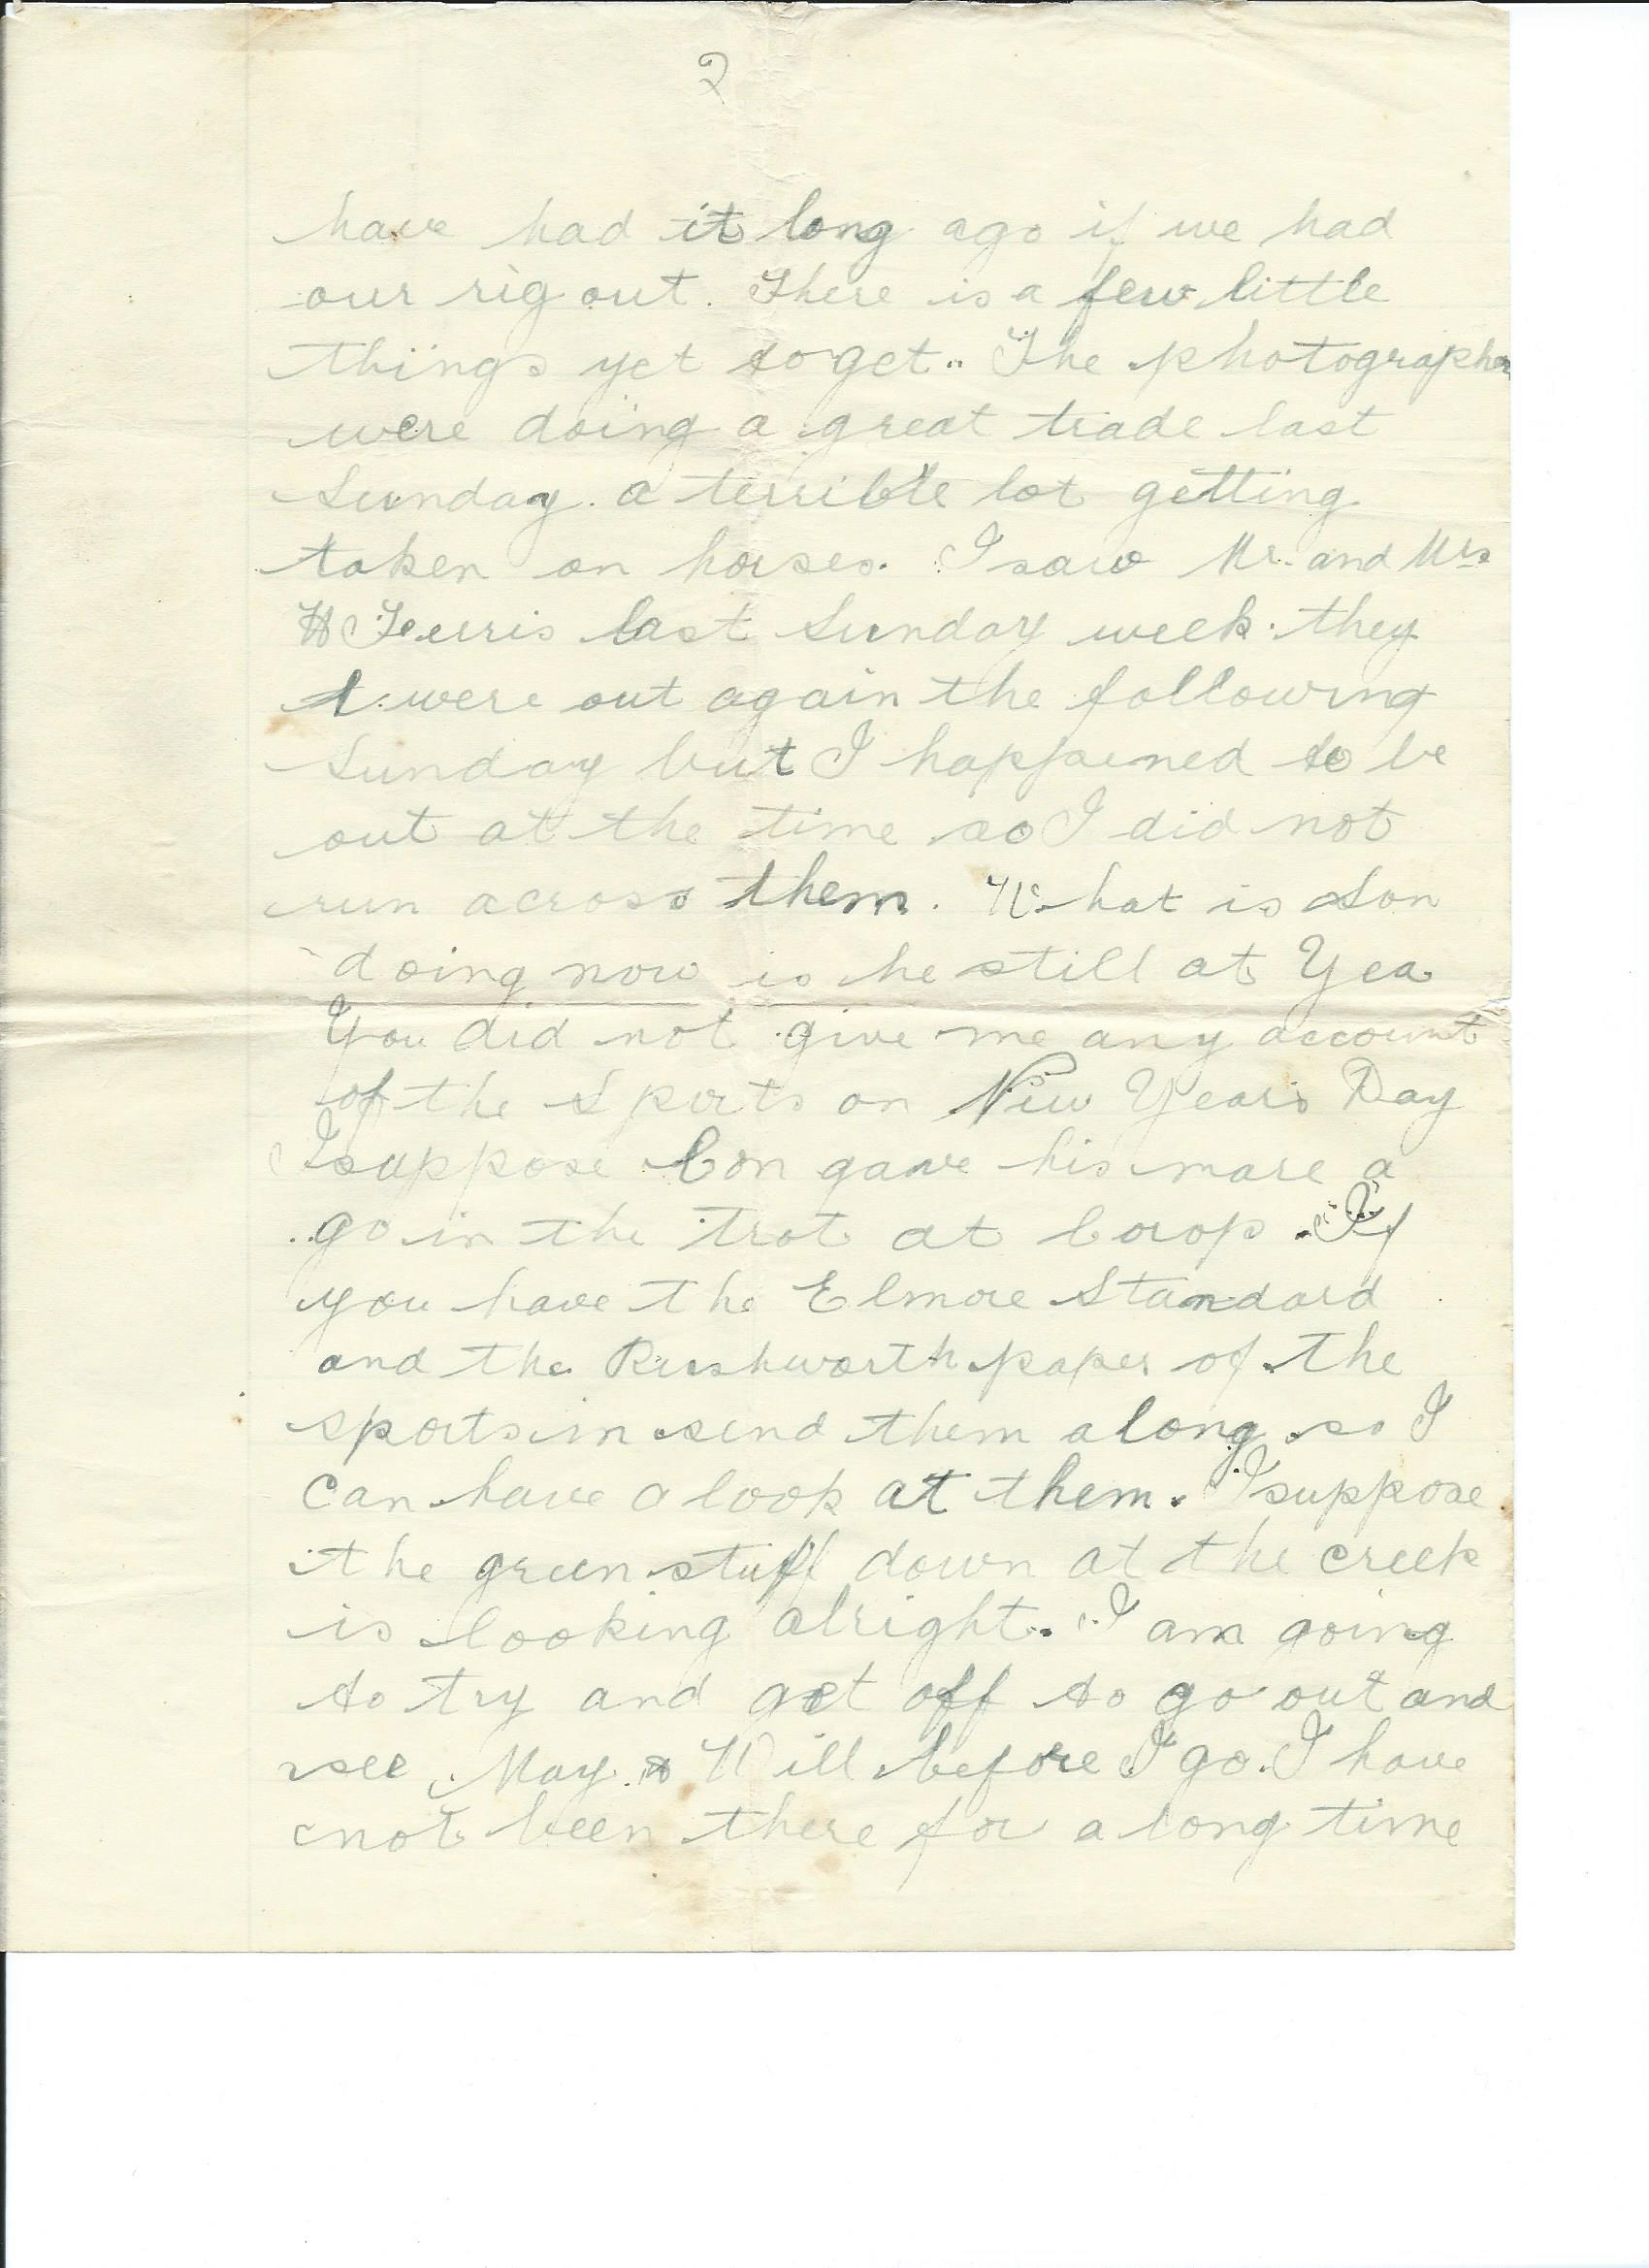 2
have had it long ago if we had
our rig out. There is a few little
things yet to get. The photographer
were doing a great trade last
Sunday. a terrible lot getting
taken on horses. I saw Mr. and Mrs
H Ferris last Sunday week. they
were out again the following
Sunday but I happened to be
out at the time so I did not
run across them. What is Son
doing now is he still at Yea
You did not give me any account
of the Sports on New Years Day
I suppose Con gave his mare a
go in the trot at Corop. If
you have the Elmore Standard
and the Rushworth paper of the
sports in send them along so I
can have a look at them. I suppose
the green stuff down at the creek
is looking alright. I am going
to try and get off to go out and
see May & Will before I go. I have
not been there for a long time